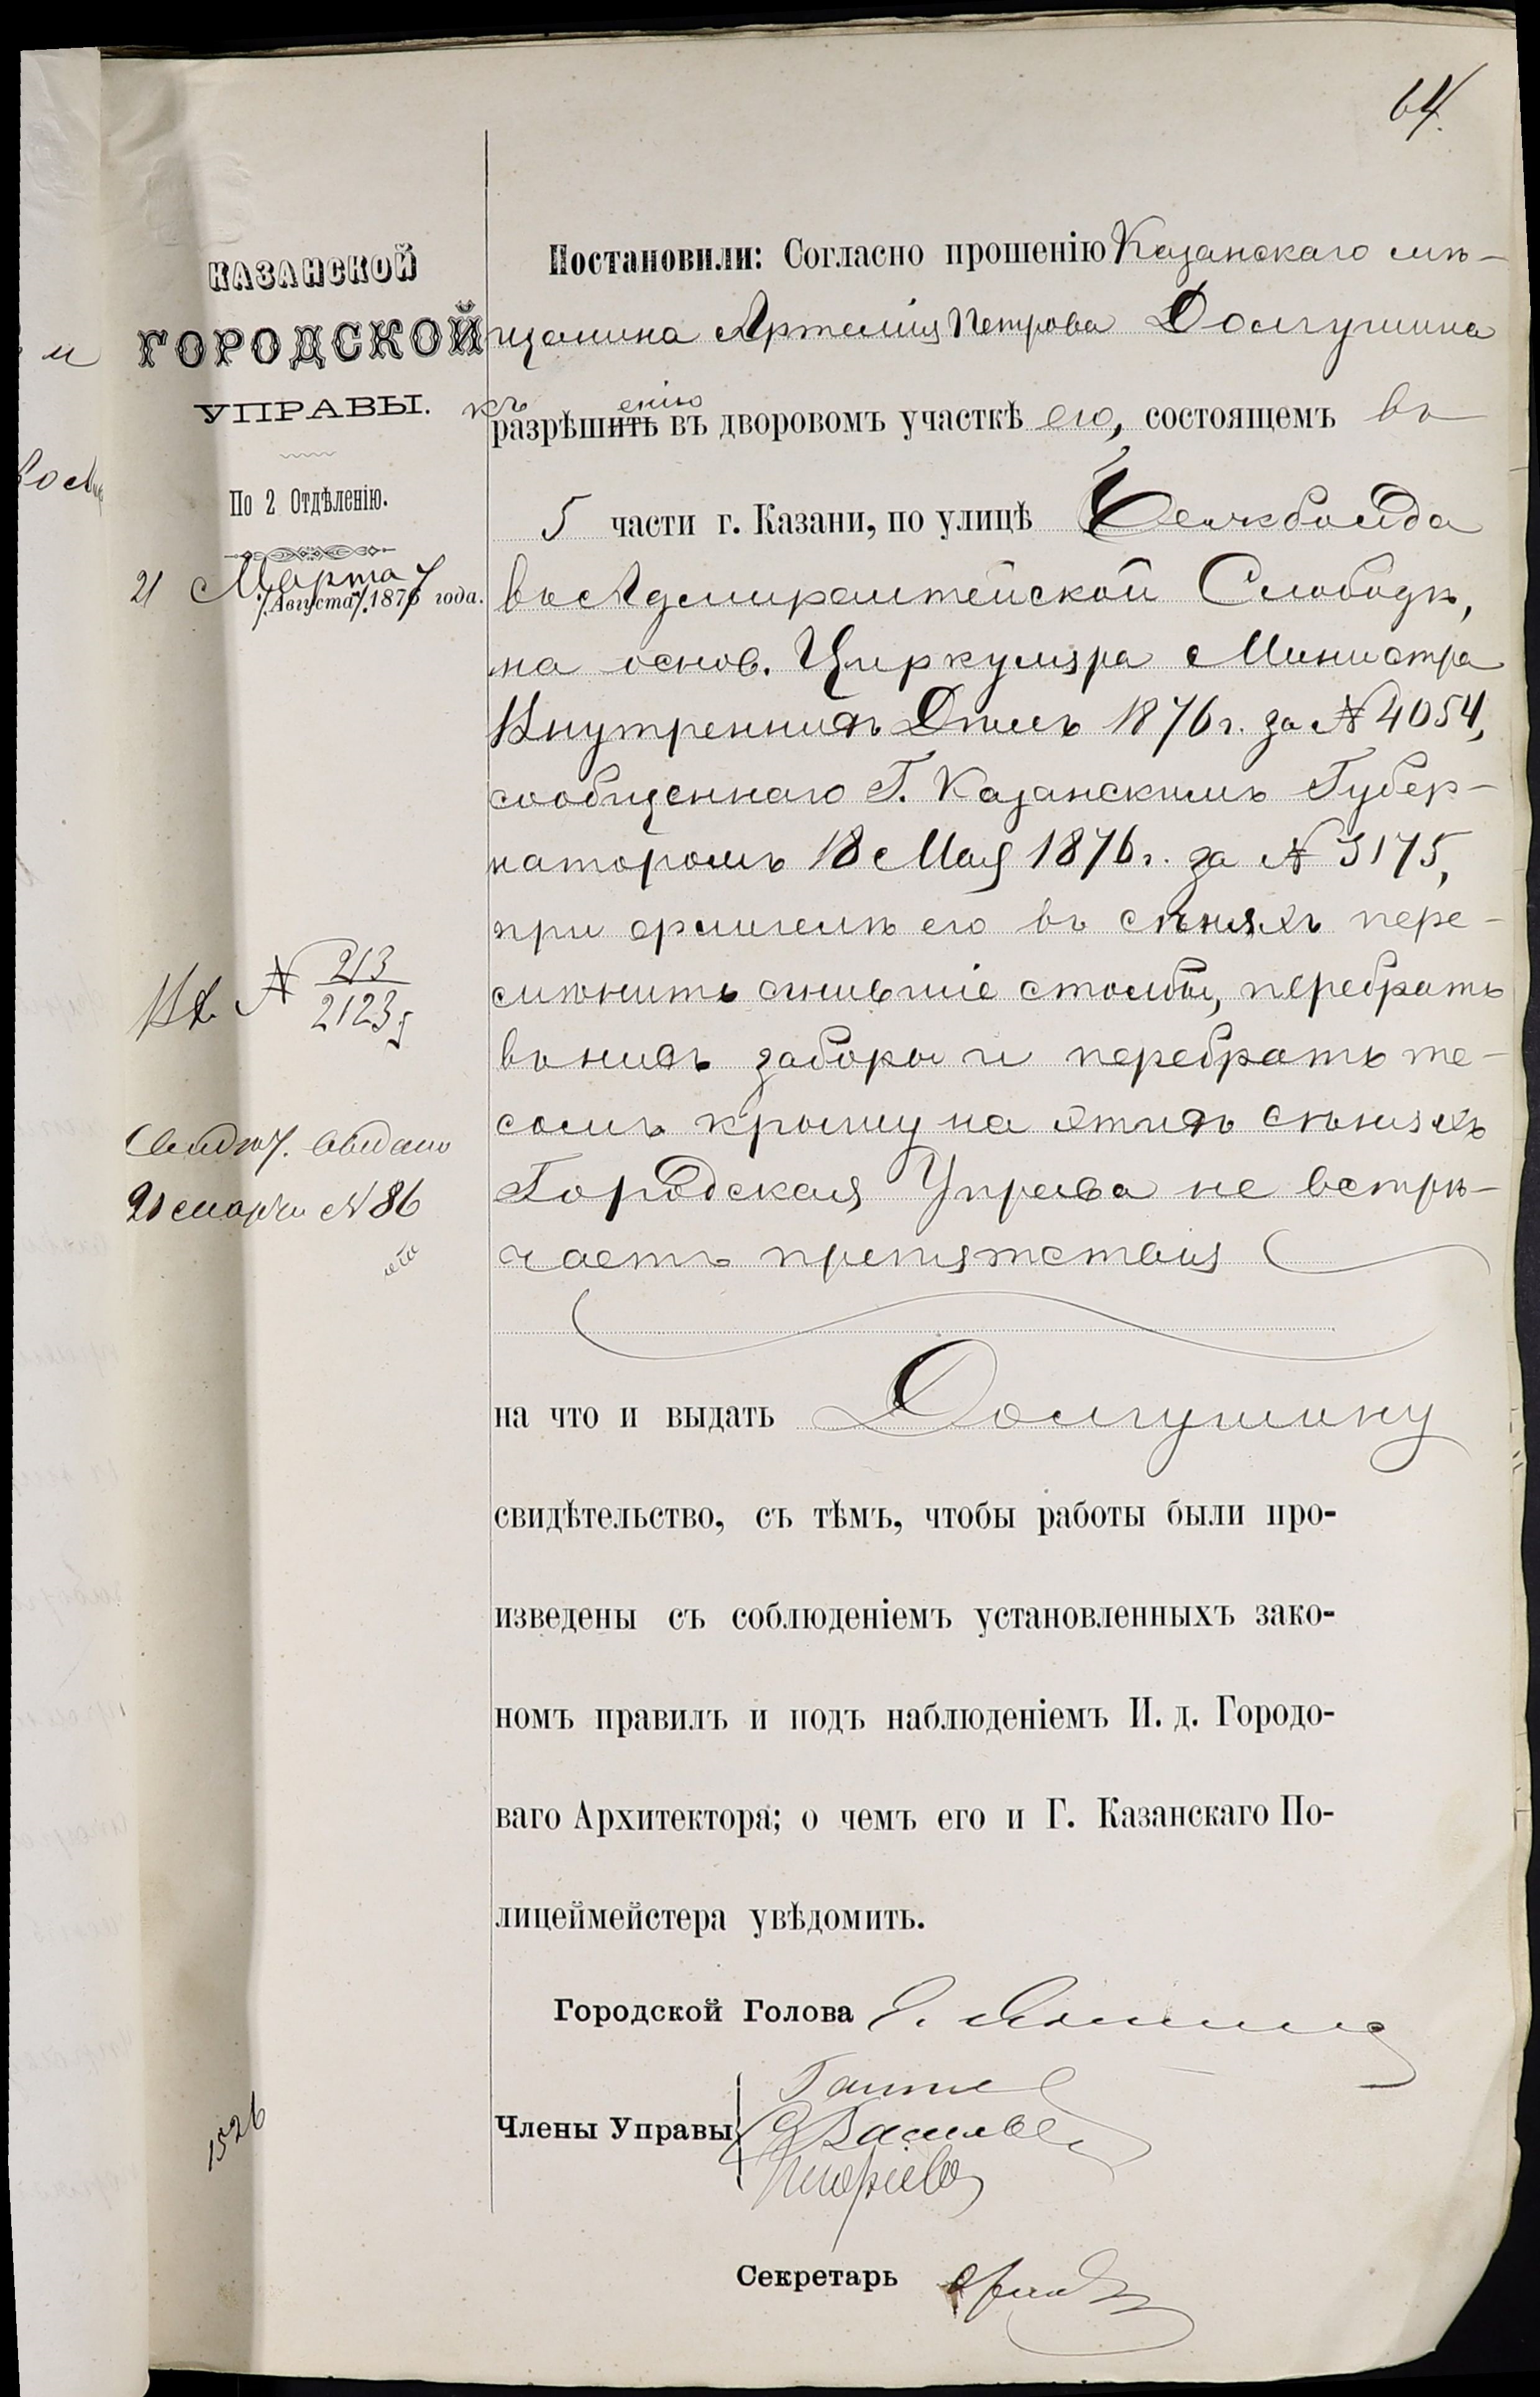 64.
КАЗАНСКОЙ
ГОРОДСКОЙ
УПРАВЫ.
По 2 Отдѣленію.
21 Марта 7
/Августа/. 1876 года.
Вх. № 213/2123
выдано
21 марта № 86
1526
Постановили: Согласно прошенію Казанскаго мѣ-
щанина Артемія Петрова Долгушина
къ разрѣшить енію въ дворовомъ участкѣ его, состоящемъ въ
5 части г. Казани, по улицѣ
въ Адмиралтейской Слободѣ,
на основ. Циркуляра Министра
Внутреннихъ Дѣлъ 1876 г. за № 4054,
сообщеннаго Г. Казанскимъ Губер-
наторомъ 18 Мая 1876 г. за № 3175,
при флигелѣ его въ сѣняхъ пере-
смѣнить сгнившіе столбы, перебрать
въ нихъ заборы и перебрать те-
сомъ крышу на этихъ сѣняхъ
Городская Управа не встрѣ-
чаетъ препятствія
на что и выдать Долгушину
свидѣтельство, съ тѣмъ, чтобы работы были про-
изведены съ соблюденіемъ установленныхъ зако-
номъ правилъ и подъ наблюденіемъ И. д. Городо-
ваго Архитектора; о чемъ его и Г. Казанскаго По-
лицеймейстера увѣдомить.
Городской Голова
Члены Управы
Секретарь